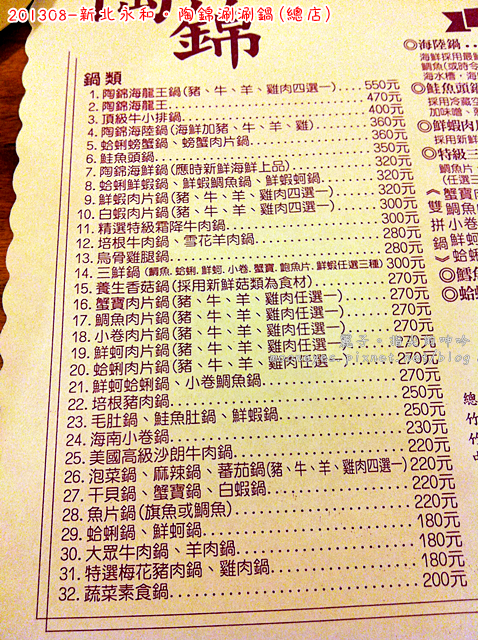 201308-新北永和。陶錦涮涮鍋(總店)
錦
鍋類
1. 陶錦海龍王鍋(豬、牛、羊、雞肉四選一)....550元
2. 陶錦海龍王....470元
3. 頂級牛小排鍋....400元
4. 陶錦海陸鍋(海鮮加豬、牛、羊、雞)....360元
5. 蛤蜊螃蟹鍋、螃蟹肉片鍋....360元
6. 鮭魚頭鍋....350元
7. 陶錦海鮮鍋(應時新鮮海鮮上品)....320元
8. 蛤蜊鮮蝦鍋、鮮蝦鯛魚鍋、鮮蝦蚵鍋....320元
9. 鮮蝦肉片鍋(豬、牛、羊、雞肉四選一)....320元
10. 白蝦肉片鍋(豬、牛、羊、雞肉四選一)....300元
11. 精選特級霜降牛肉鍋....300元
12. 培根牛肉鍋、雪花羊肉鍋....280元
13. 烏骨雞腿鍋....280元
14. 三鮮鍋(鯛魚、蛤蜊、鮮蚵、小卷、蟹寶、鮑魚片、鮮蝦任選三種)300元
15. 養生香菇鍋(採用新鮮菇類為食材)....270元
16. 蟹寶肉片鍋(豬、牛、羊、雞肉任選一)....270元
17. 鯛魚肉片鍋(豬、牛、羊、雞肉任選一)....270元
18. 小卷肉片鍋(豬、牛、羊、雞肉任選一)....270元
19. 鮮蚵肉片鍋(豬、牛、羊、雞肉任選一)
20. 蛤蜊肉片鍋(豬、牛、羊、雞肉任選一)
21. 鮮蚵蛤蜊鍋、小卷鯛魚鍋....270元
22. 培根豬肉鍋....250元
23. 毛肚鍋、鮭魚肚鍋、鮮蝦鍋....250元
24. 海南小卷鍋....230元
25. 美國高級沙朗牛肉鍋....220元
26. 泡菜鍋、麻辣鍋、蕃茄鍋(豬、牛、羊、雞肉四選一)220元
27. 干貝鍋、蟹寶鍋、白蝦鍋....220元
28. 魚片鍋(旗魚或鯛魚)....220元
29. 蛤蜊鍋、鮮蚵鍋....180元
30. 大眾牛肉鍋、羊肉鍋....180元
31. 特選梅花豬肉鍋、雞肉鍋....180元
32. 蔬菜素食鍋....200元
◎海陸鍋..
海鮮採用最
鯛魚(或時令
海水槽,海
◎鮭魚頭鍋
採用冷藏空
加味噌、
◎鮮蝦肉片
採用新鮮
◎特級三
鯛魚片、
(任選三
《雙拼鍋》
蟹寶肉
鯛魚肉
小卷肉
鮮蚵
蛤蜊
◎鱈
◎蛤
總
竹
竹